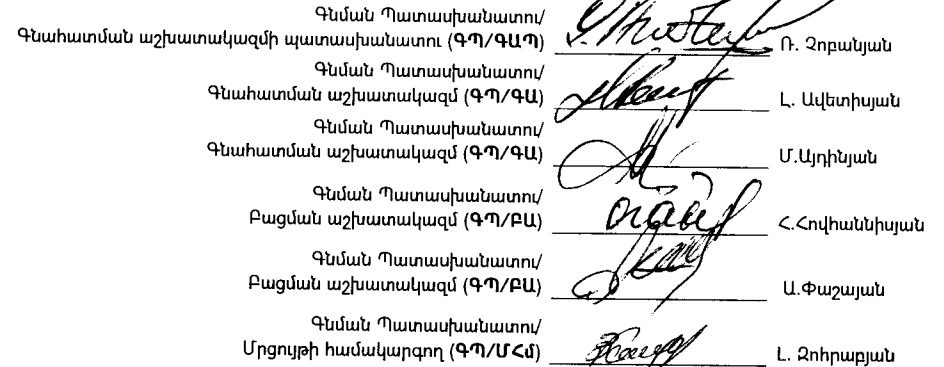 Գնման Պատասխանատու/
Գնահատման աշխատակազմի պատասխանատու (ԳՊ/ԳԱՊ) Ռ. Չոբանյան
Գնման Պատասխանատու/
Գնահատման աշխատակազմ (ԳՊ/ԳԱ) Լ. Ավետիսյան
Գնման Պատասխանատու/
Գնահատման աշխատակազմ (ԳՊ/ԳԱ) Մ.Այդինյան
Գնման Պատասխանատու/
Բացման աշխատակազմ (ԳՊ/ԲԱ) Հ.Հովհաննիսյան
Գնման Պատասխանատու/
Բացման աշխատակազմ (ԳՊ/ԲԱ) Ա.Փաշայան
Գնման Պատասխանատու/
Մրցույթի համակարգող (ԳՊ/ՄՀմ) Լ. Զոհրաբյան